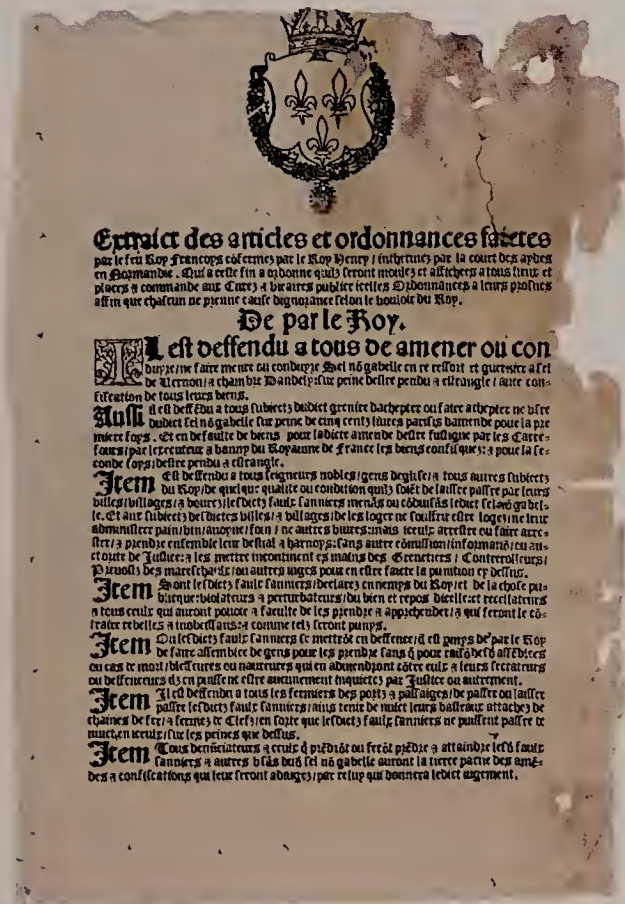 Extraict des articles et ordonnances faictes
par le feu Roy Francoys cõfermez par le Roy Henry / intherinez par la court des aydes
en Normandie . Qui a ceste fin a ordonne quilz seront moulez et affichees a tous lieux et
places ⁊ commande aux Curez ⁊ vicaires publier icelles Ordonnances a leurs prosnes
affin que chascun ne prenne cause dignorance selon le vouloir du Roy.
De par le Roy.
IL est deffendu a tous de amener ou con
duyre / ne faire mener ou conduyre Sel nõ gabelle en ce ressort et grenier a sel
de Vernon / ⁊ chambre Dandely: sur peine destre pendu ⁊ estrangle / auec con-
fiscation de tous leurs biens.
Aussi il est deffẽdu a tous subiectz dudict grenier dachepter ou faire achepter ne vser
dudict sel nõ gabelle sur peine de cinq centz liures parisis damende pour la pre
miere foys . Et en deffaulte de biens pour ladicte amende destre fustigue par les Carre-
fours / par lexecuteur ⁊ banny du Royaume de France les biens confisquez: ⁊ pour la se-
conde foys / destre pendu ⁊ estrangle.
Item Est deffendu a tous seigneurs nobles / gens deglise / ⁊ tous autres subiectz
du Roy / de quelque qualite ou condition quilz soiẽt de laisser passer par leurs
villes / villages / ⁊ bourcz / lesdictz faulx sanniers menãs ou cõduisãs ledict sel nõ gabel-
le. Et aux subiectz desdictes villes / ⁊ villages / de les loger ne souffrir estre logez / ne leur
administrer pain / vin / auoyne / foin / ne autres viures: mais iceulx arrester ou faire arre-
ster / ⁊ prendre ensemble leur bestial ⁊ harnoys: sans autre cõmission / informatiõ / ou au-
ctorite de Justice: ⁊ les mettre incontinent es mains des Grenetiers / Contrerolleurs /
Preuostz des mareschaulx / ou autres iuges pour en estre faicte la punition cy dessus.
Item Sont lesdictz faulx sanniers / declarez ennemys du Roy / et de la chose pu-
blicque: violateurs ⁊ perturbateurs / du bien et repos dicelle: et recellateurs
⁊ tous ceulx qui auront pouoir ⁊ faculte de les prendre ⁊ apprehender / ⁊ qui feront le cõ-
traire rebelles ⁊ inobeissans: ⁊ comme telz seront punys.
Item Ou lesdictz faulx sanniers se mettrõt en deffence / il est permys de par le Roy
de faire assemblee de gens pour les prendre sans q̃ pour raisõ desd assẽblees
ou cas de mort / blesseures ou nautreures qui en aduiendront cõtre eulx ⁊ leurs sectateurs
ou deffenceurs ilz en puissent estre aucunement inquietez par Justice ou autrement.
Item Il est deffendu a tous les fermiers des portz ⁊ passaiges / de passer ou laisser
passer lesdictz faulx sanniers / ains tenir de nuict leurs basteaux attachez de
chaines de fer / ⁊ fermez de Clefz / en sorte que lesdictz faulx sanniers ne puissent passer de
nuict, en iceulx / sur les peines que dessus.
Item Tous denũciateurs ⁊ ceulx q̃ prẽdrõt ou ferõt prẽdre ⁊ attaindre lesd faulx
sanniers ⁊ autres vsãs dud sel nõ gabelle auront la tierce partie des amẽ-
des ⁊ confiscations qui leur seront adiugez / par celuy qui donnera ledict iugement.